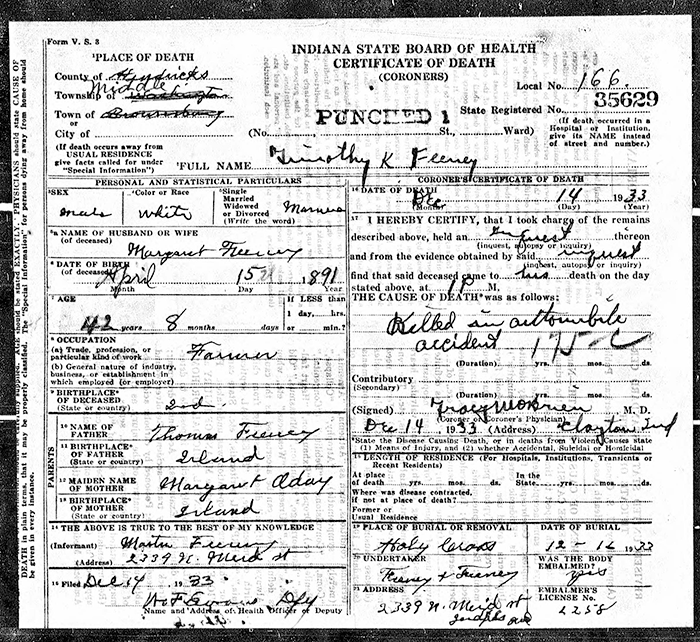 Form V. S. 3
INDIANA STATE BOARD OF HEALTH
CERTIFICATE OF DEATH
(CORONERS)
Local No. 166
35629
State Registered No.
PUNCHED 1
(If death occurred in a
Hospital or Institution,
give its NAME instead
of street and number.)
¹PLACE OF DEATH
County of Hendricks
Township of Middle Washington
Town of Brownsburg
or
City of
(No. St., Ward)
(If death occurs away from
USUAL RESIDENCE
give facts called for under
"Special Information")
²FULL NAME Timothy K Feeney
PERSONAL AND STATISTICAL PARTICULARS
³SEX
male
⁴Color or Race
white
⁵Single
Married
Widowed
or Divorced
(Write the word)
Married
⁵ᵃ NAME OF HUSBAND OR WIFE
(of deceased)
Margaret Feeney
⁶ DATE OF BIRTH
(of deceased)
April 15 1891
Month Day Year
⁷ AGE
42 years 8 months days
If LESS than
1 day, hrs.
or min.?
⁸ OCCUPATION
(a) Trade, profession, or
particular kind of work
Farmer
(b) General nature of industry,
business, or establishment in
which employed (or employer)
⁹ BIRTHPLACE
OF DECEASED
(State or country)
Ind
PARENTS
¹⁰ NAME OF
FATHER
Thomas Feeney
¹¹ BIRTHPLACE
OF FATHER
(State or country)
Irland
¹² MAIDEN NAME
OF MOTHER
Margaret Oday
¹³ BIRTHPLACE
OF MOTHER
(State or country)
Irland
¹⁴ THE ABOVE IS TRUE TO THE BEST OF MY KNOWLEDGE
(Informant) Martin Feeney
(Address) 2339 N. Merid st
¹⁵ Filed Dec 14, 1933
Name and Address of Health Officer or Deputy
CORONER'S CERTIFICATE OF DEATH
¹⁶ DATE OF DEATH
Dec 14 1933
(Month) (Day) (Year)
¹⁷ I HEREBY CERTIFY, that I took charge of the remains
described above, held an inquest thereon
(inquest, autopsy or inquiry)
and from the evidence obtained by said inquest
(inquest, autopsy or inquiry)
find that said deceased came to his death on the day
stated above, at 1 P M,
THE CAUSE OF DEATH* was as follows:
Killed in automobile
accident 175-c
(Duration) yrs. mos. ds.
Contributory
(Secondary)
(Duration) yrs. mos. ds.
(Signed) M. D.
(Coroner or Coroner's Physician)
Dec 14, 1933 (Address) Clayton Ind
*State the Disease Causing Death, or in deaths from Violent Causes state
(1) Means of Injury, and (2) whether Accidental, Suicidal or Homicidal
LENGTH OF RESIDENCE (For Hospitals, Institutions, Transients or
Recent Residents)
At place
of death yrs. mos. ds.
In the
State yrs. mos. ds.
Where was disease contracted,
if not at place of death?
Former or
Usual Residence
¹⁹ PLACE OF BURIAL OR REMOVAL
Holy Cross
DATE OF BURIAL
12-16 1933
²⁰ UNDERTAKER
Feeney & Feeney
WAS THE BODY
EMBALMED?
yes
²¹ ADDRESS
2339 N. Merid st
Indpls Ind
EMBALMER'S
LICENSE No.
2258